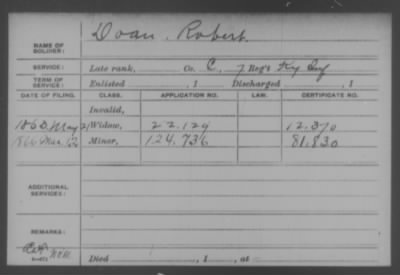 Doan, Robert.
NAME OF
SOLDIER:
SERVICE: Late rank, Co. C, 7 Reg't Ky Inf
TERM OF
SERVICE: Enlisted , 1 Discharged , 1
DATE OF FILING. CLASS. APPLICATION NO. LAW. CERTIFICATE NO.
Invalid,
1863, May 21 Widow, 22.129 12.370
1866 Mar. 12 Minor, 124.736 81.830
ADDITIONAL
SERVICES:
REMARKS:
Died , 1 , at